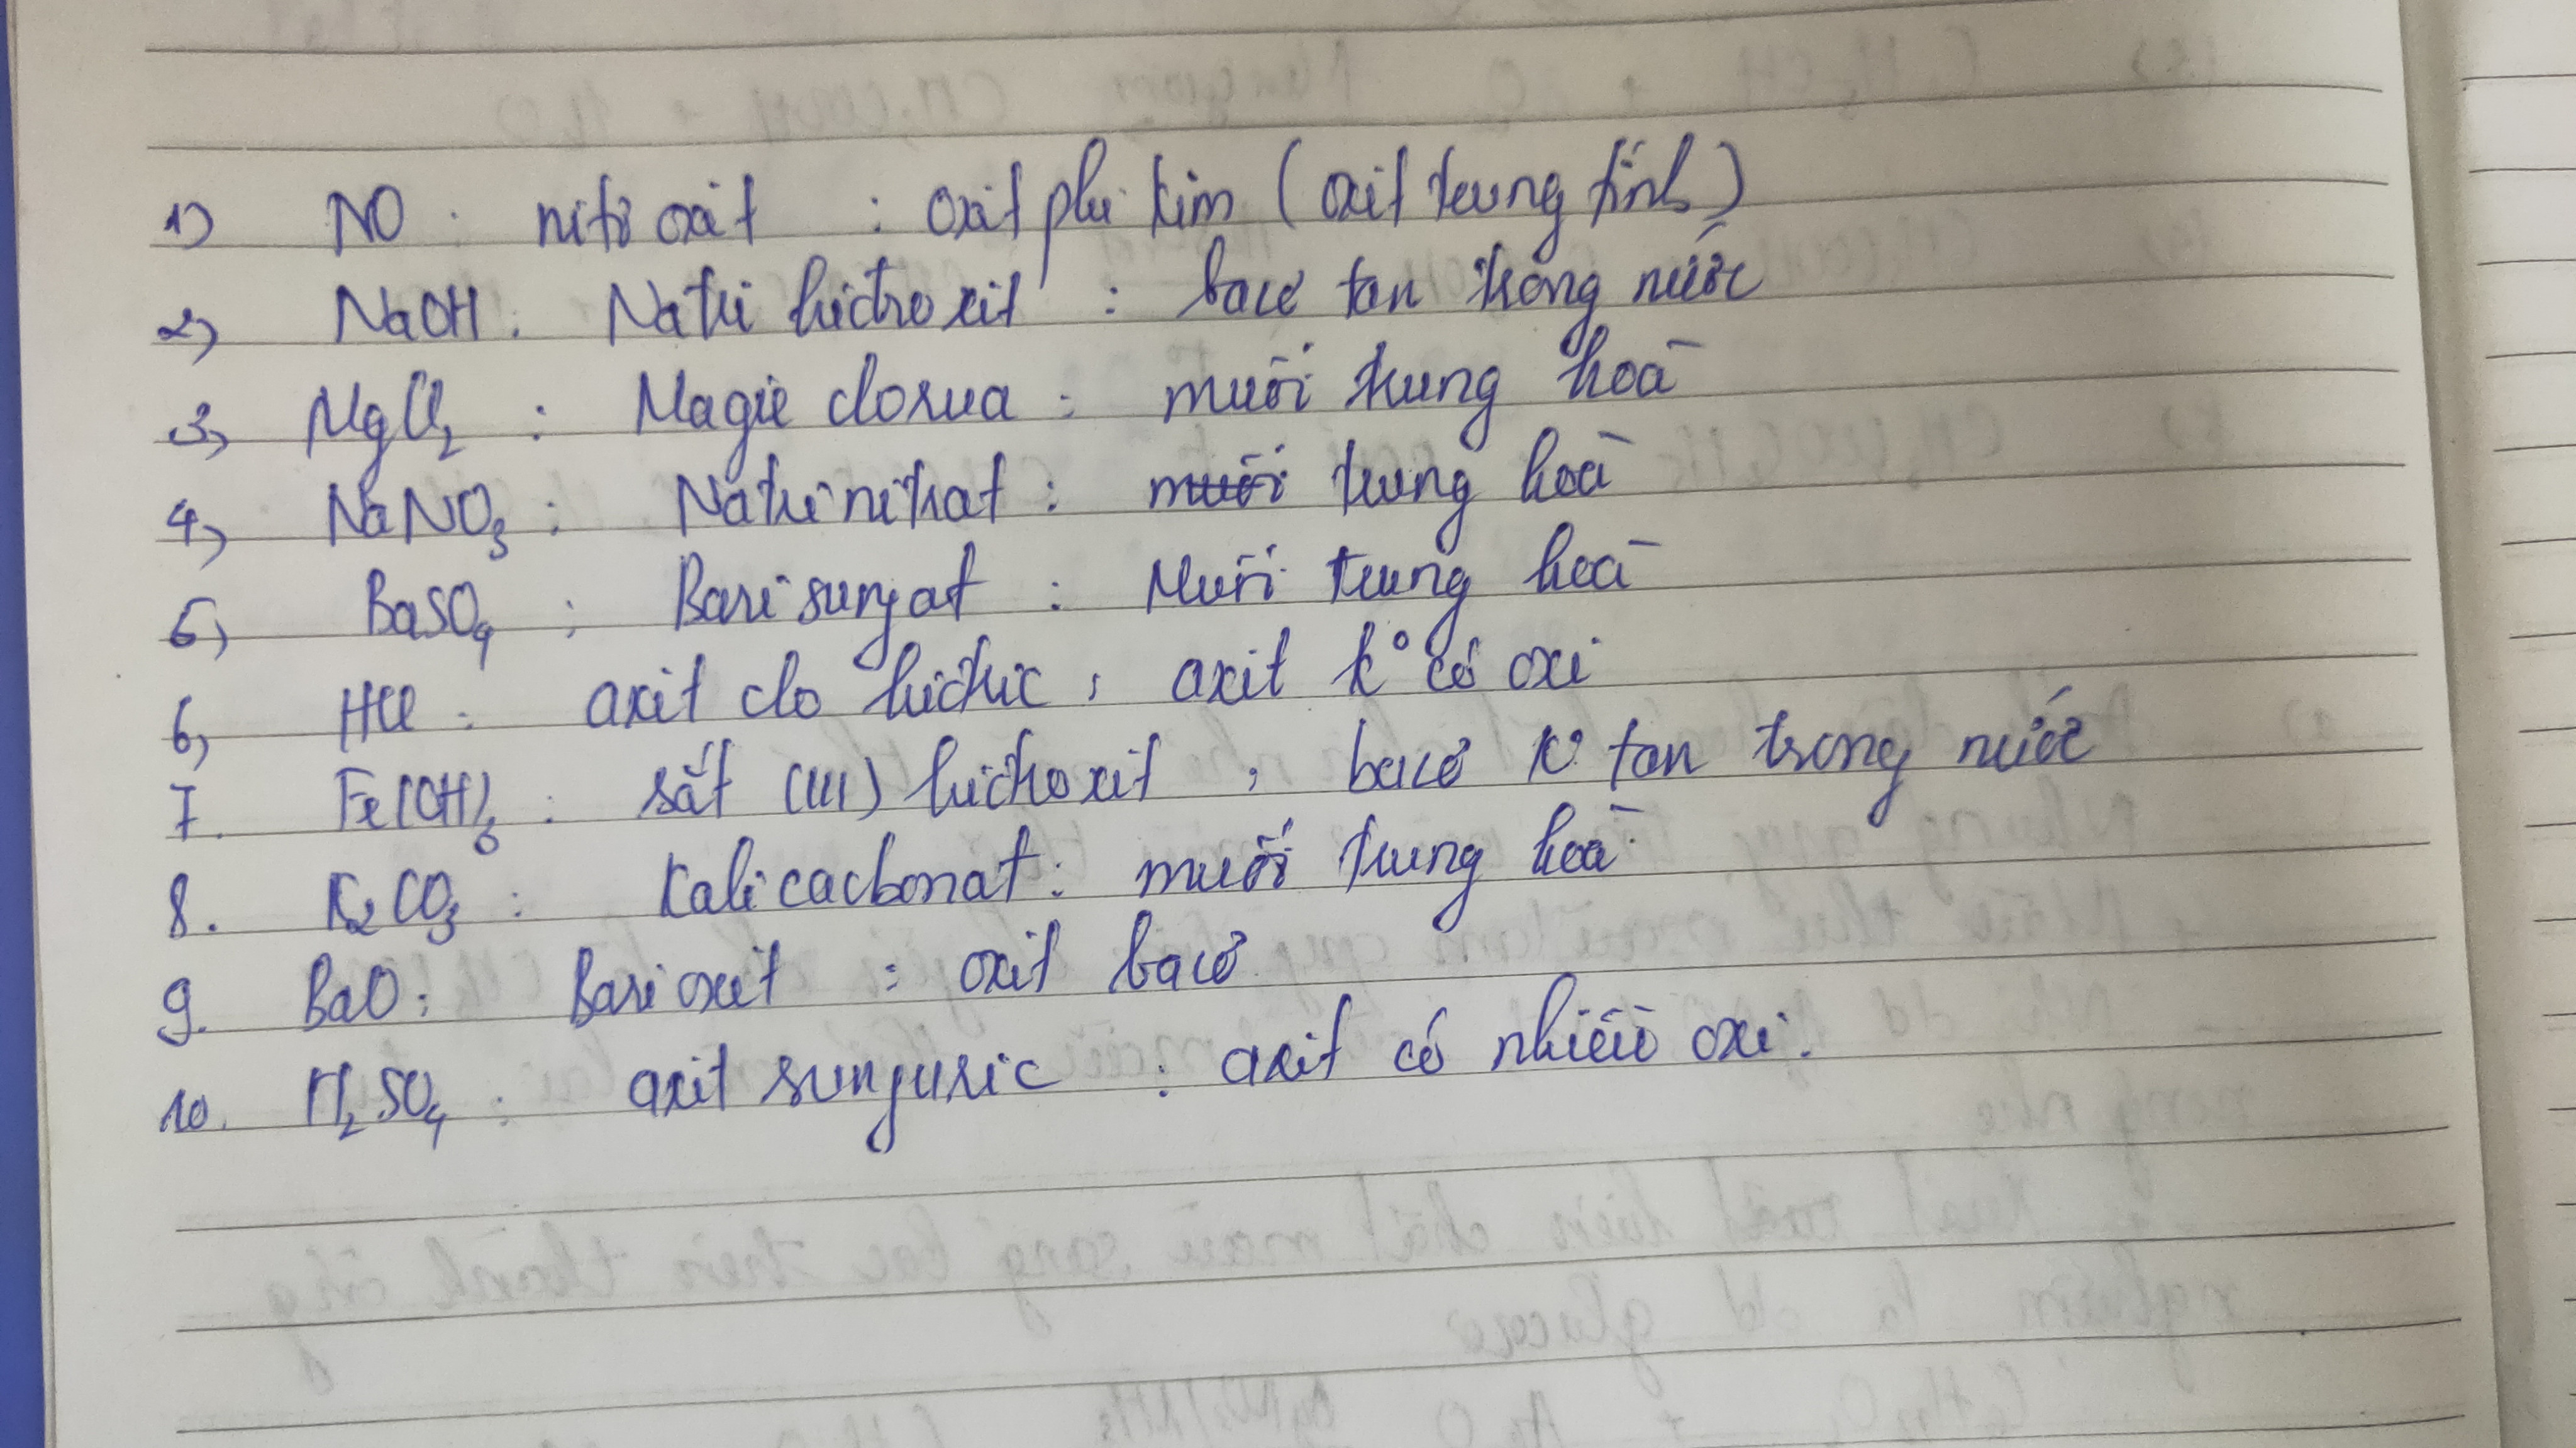 1) NO : nitơ oxit : oxit phi kim (oxit trung tính)
2) NaOH : Natri hidroxit : bazơ tan trong nước
3) MgCl₂ : Magie clorua : muối trung hoà
4) NaNO₃ : Natri nitrat : muối trung hoà
5) BaSO₄ : Bari sunfat : Muối trung hoà
6) HCl : axit clo hidric : axit k° có oxi
7. Fe(OH)₃ : sắt (III) hidroxit : bazơ k° tan trong nước
8. K₂CO₃ : Kali cacbonat : muối trung hoà
9. BaO : Bari oxit : oxit bazơ
10. H₂SO₄ : axit sunfuric : axit có nhiều oxi.